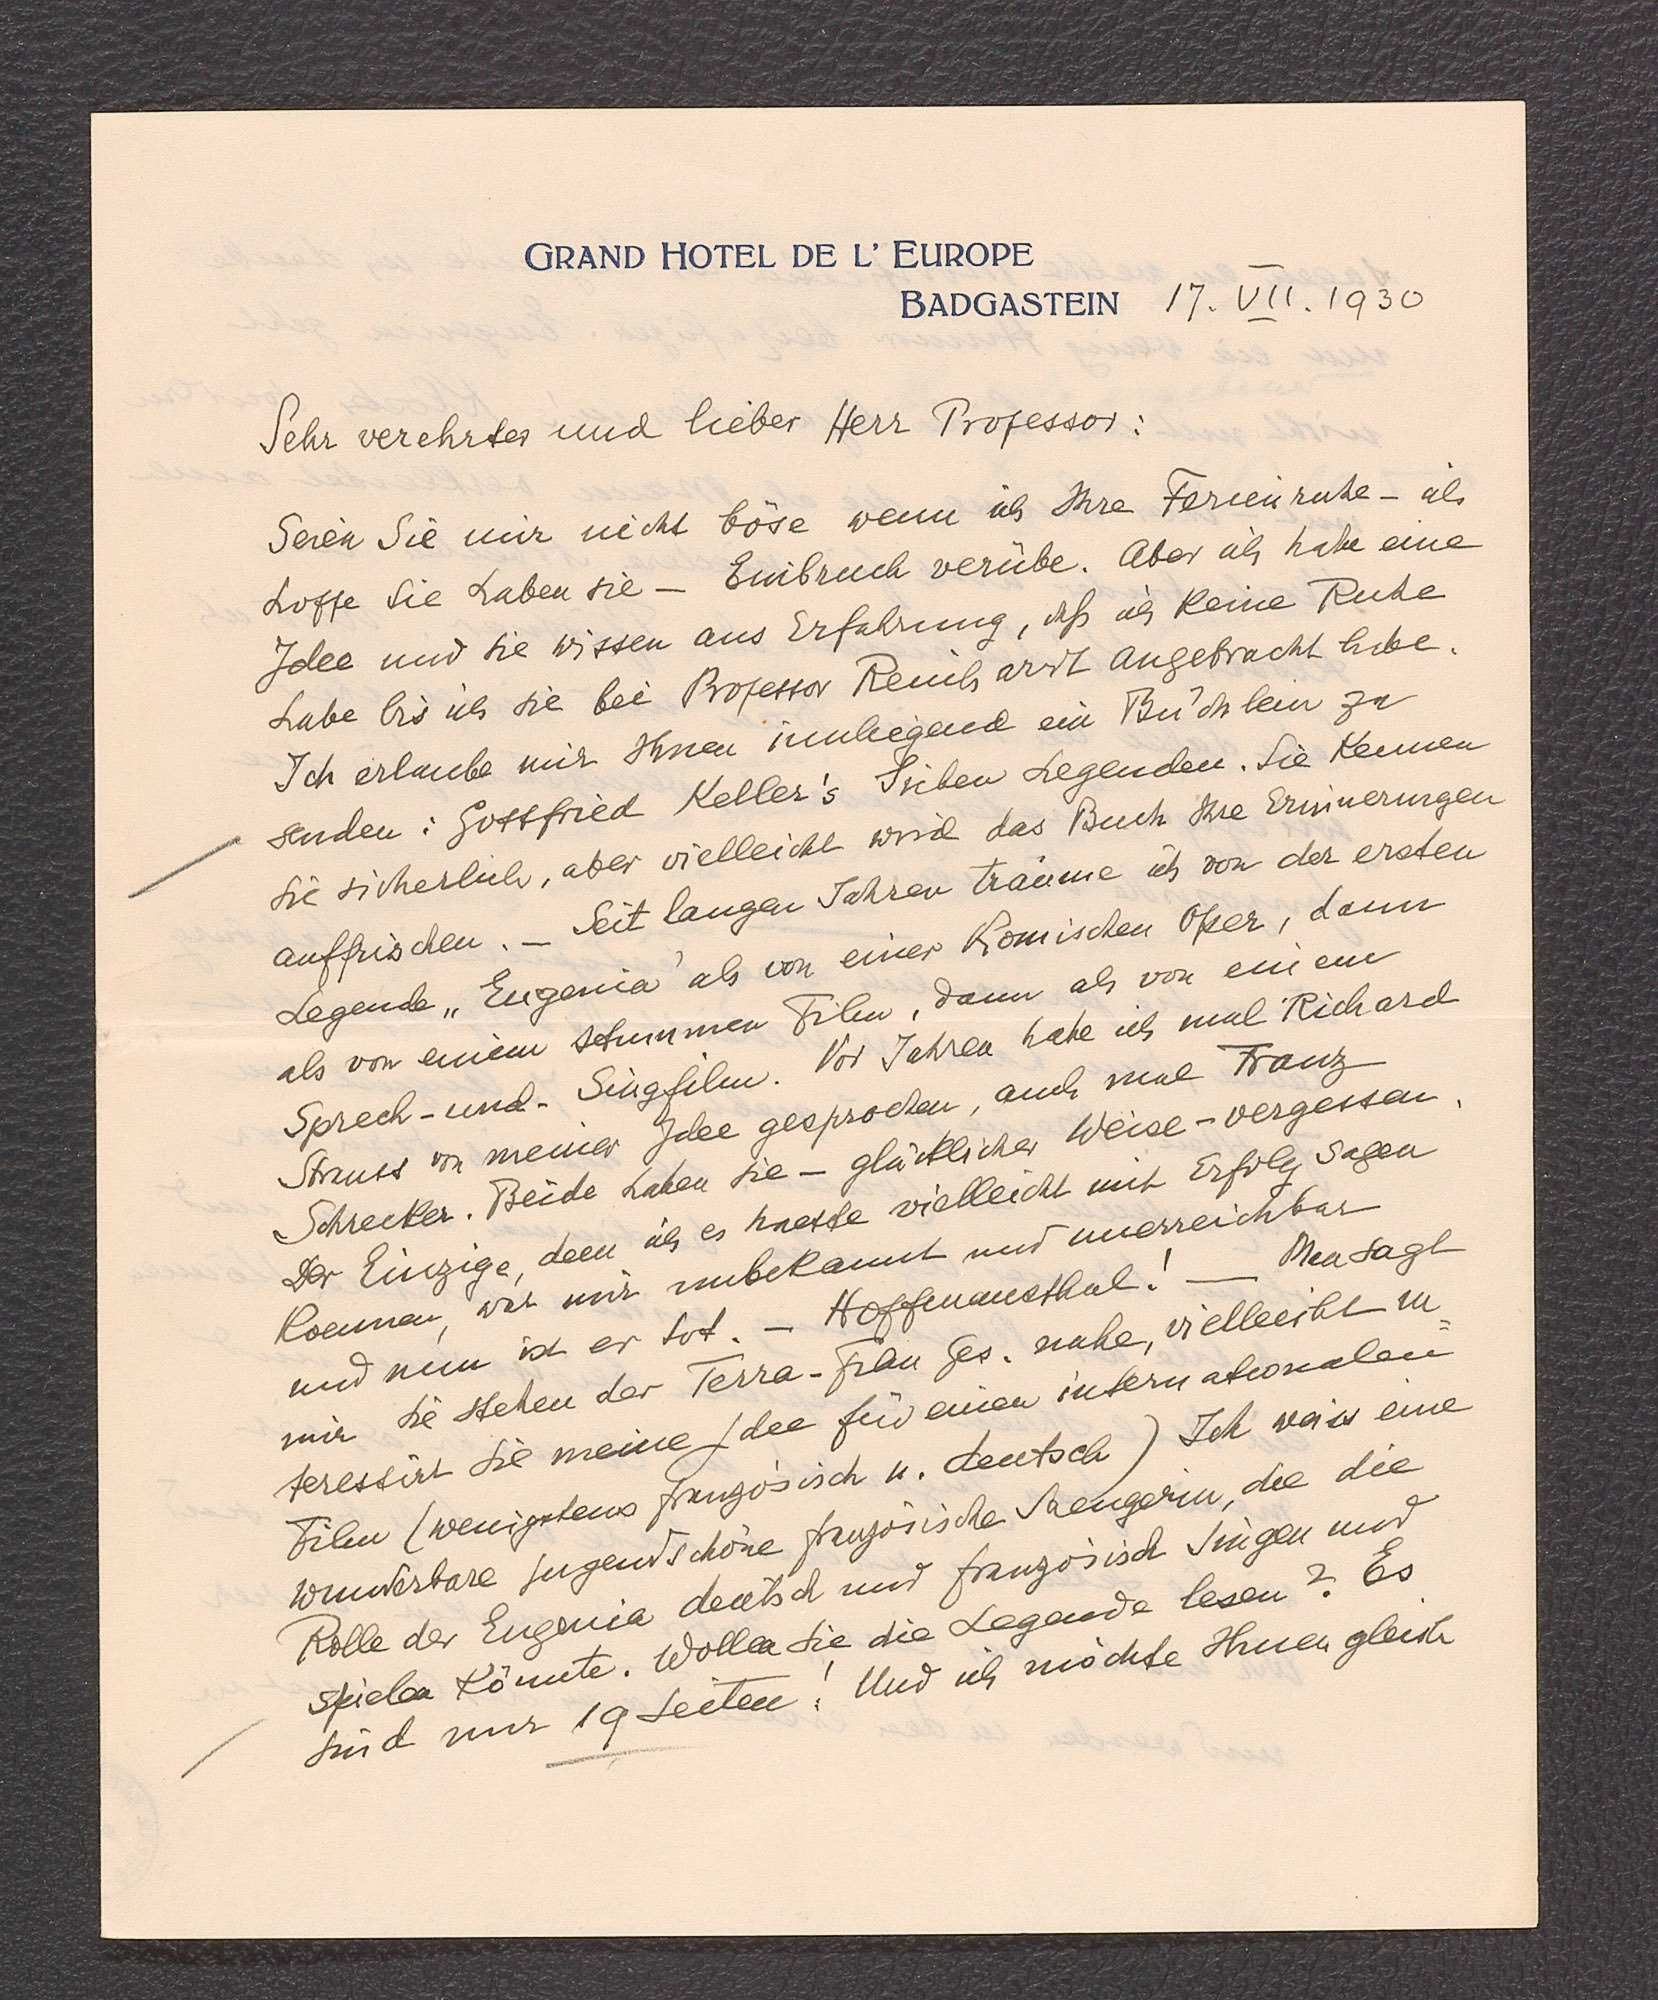 GRAND HOTEL DE L' EUROPE
BADGASTEIN 17. VII. 1930
Sehr verehrter und lieber Herr Professor:
Seien Sie mir nicht böse wenn ich Ihre Ferienruhe – ich
hoffe Sie haben sie – Einbruch verübe. Aber ich habe eine
Idee und Sie wissen aus Erfahrung, dß ich keine Ruhe
habe bis ich sie bei Professor Reinhardt angebracht habe.
Ich erlaube mir Ihnen innliegend ein Büchlein zu
senden: Gottfried Keller's Sieben Legenden. Sie kennen
sie sicherlich, aber vielleicht wird das Buch Ihre Erinnerungen
auffrischen. – Seit langen Jahren träume ich von der ersten
Legende „Eugenia" als von einer Komischen Oper, dann
als von einem stummen Film, dann als von einem
Sprech-und-Singfilm. Vor Jahren habe ich mal Richard
Strauss von meiner Idee gesprochen, auch mal Franz
Schreker. Beide haben sie – glücklicher Weise – vergessen.
Der Einzige, dem ich es haette vielleicht mit Erfolg sagen
koennen, war mir unbekannt und unerreichbar
und nun ist er tot. – Hoffmansthal! — Man sagt
mir Sie stehen der Terra-Film Ges. nahe, vielleicht in=
teressirt Sie meine Idee für einen internationalen
Film (wenigstens französisch u. deutsch) Ich weiss eine
wunderbare jugendschöne französische Saengerin, die die
Rolle der Eugenia deutsch und französisch singen und
spielen könnte. Wollen Sie die Legende lesen? Es
sind nur 19 Seiten! Und ich möchte Ihnen gleich